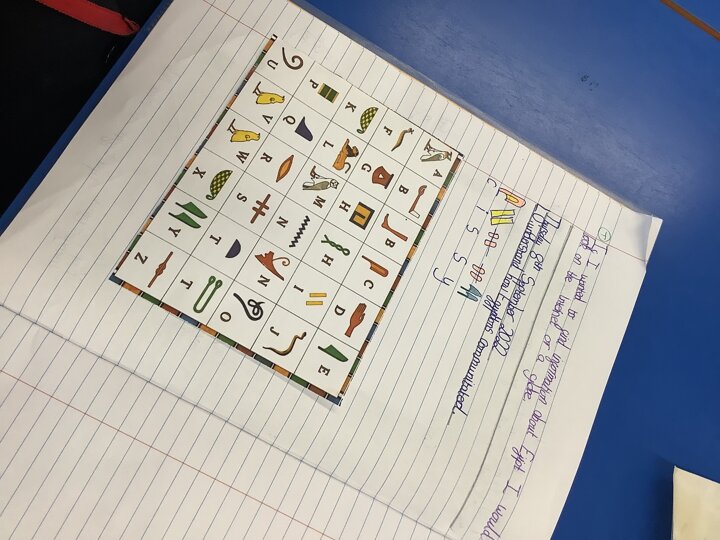 If I wanted to find information about Egypt I would
look on the internet or a globe.
Tuesday 6th September 2022
Understand how Egyptians communicated.
C i s s y
A B B C D E
F G H H I J
K L M N N O
P Q R S T T
U V W X Y Z